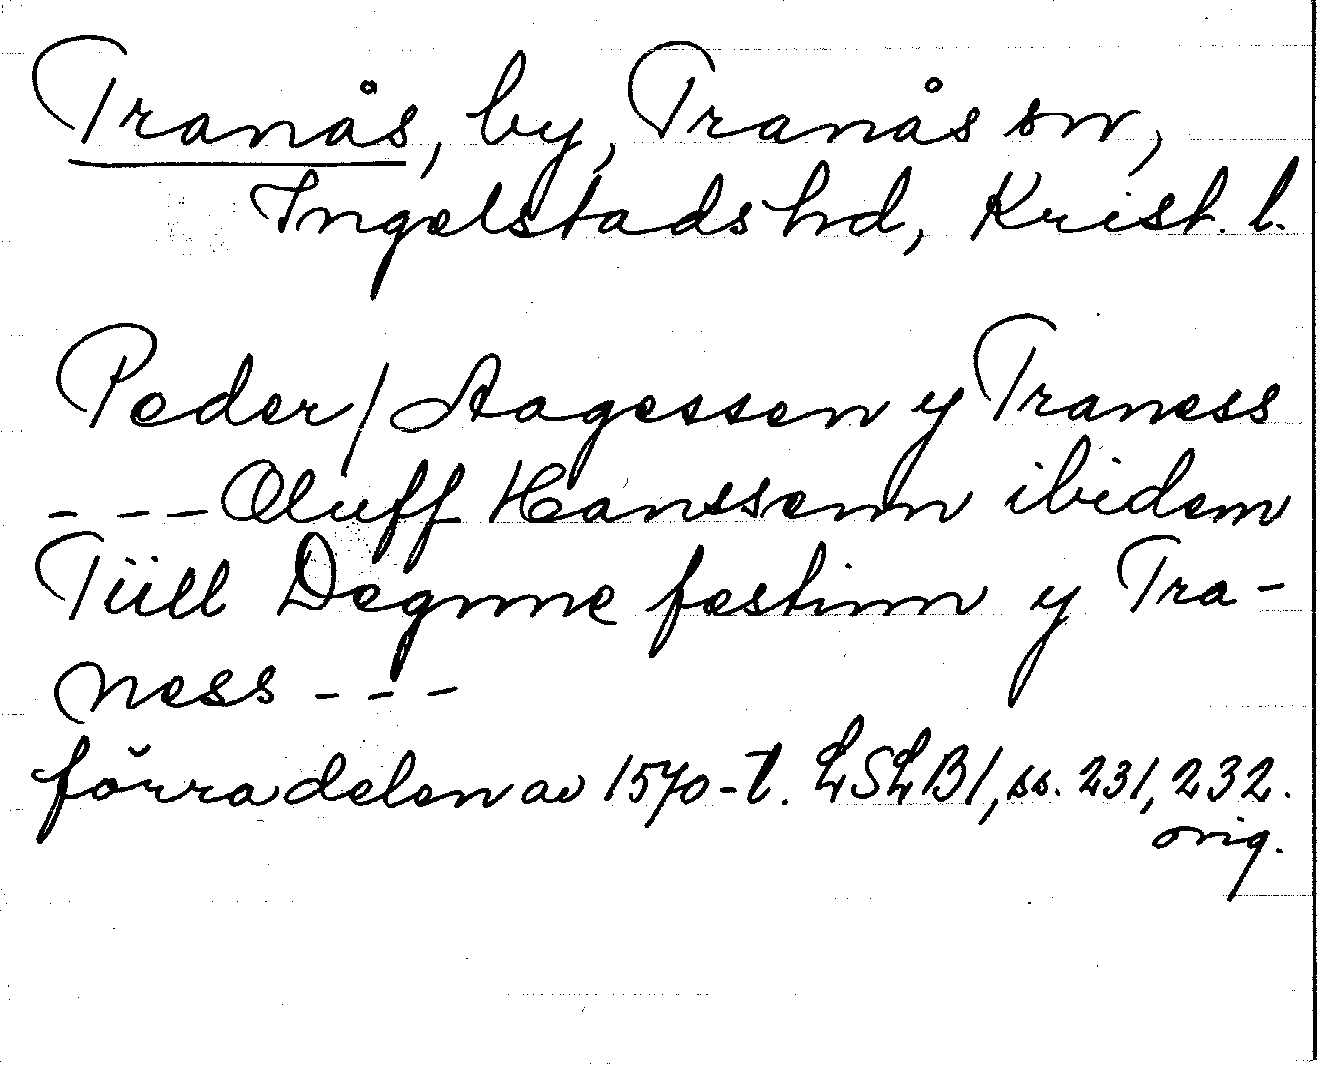 Tranås, by, Tranås sn,
Ingelstads hd, Krist. l.
Peder/Aagessen y Traness
---Oluff Hanssenn ibidem
Tüll Degnne festinn y Tra-
ness ---
förra delen av 1570-t. LSLB1, ss. 231, 232.
orig.